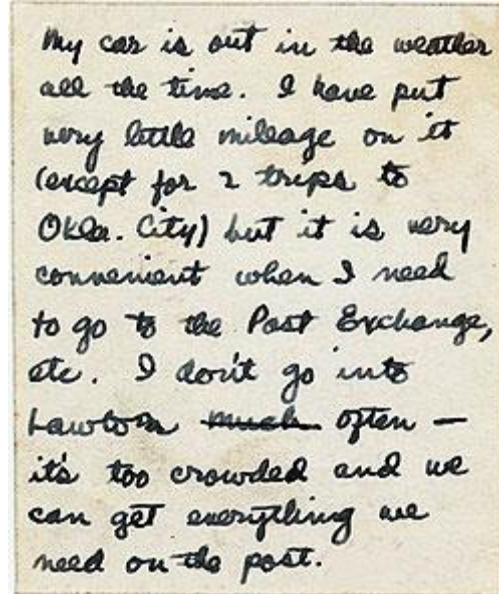 My car is out in the weather
all the time. I have put
very little mileage on it
(except for 2 trips to
Okla. City) but it is very
convenient when I need
to go to the Post Exchange,
etc. I don't go into
Lawton much often —
it's too crowded and we
can get everything we
need on the post.